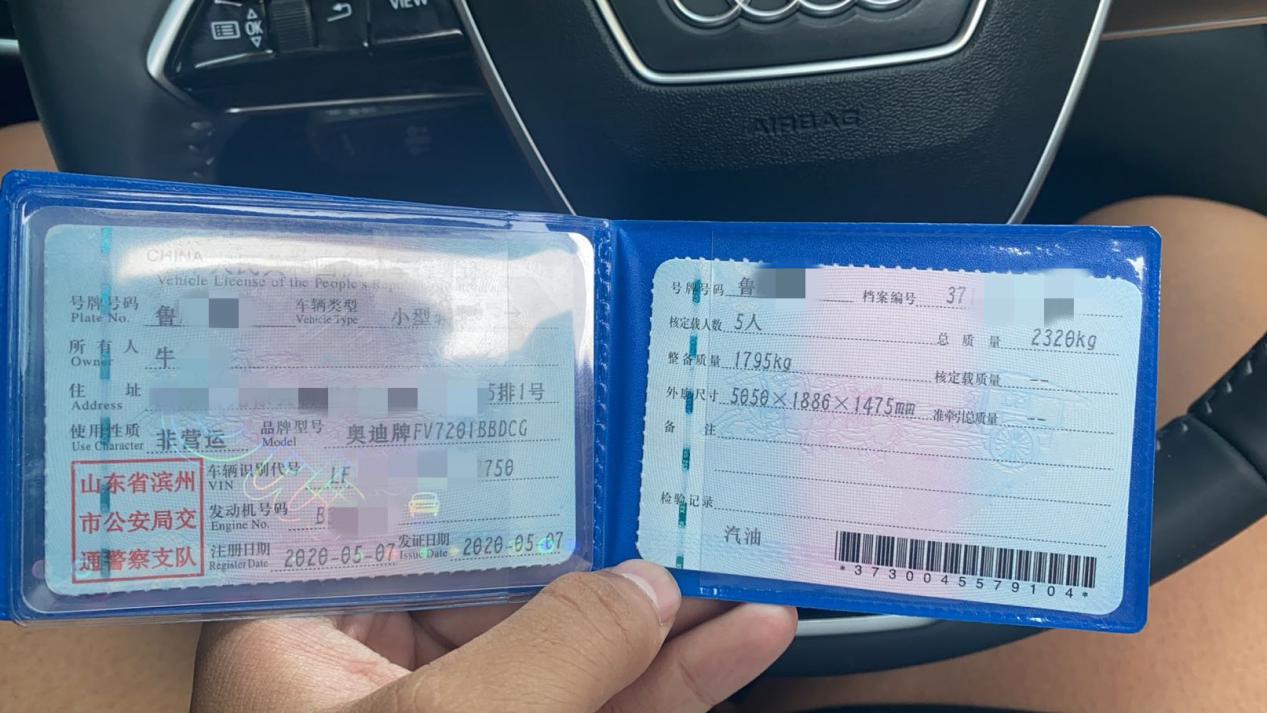 OK
VIEW
AIRBAG
CHINA
Vehicle License of the People's
号牌号码 鲁
Plate No.
车辆类型 小型
Vehicle Type
所有人 牛
Owner
住址 5排1号
Address
使用性质 非营运
Use Character
品牌型号 奥迪牌FV7201BBDCG
Model
山东省滨州
市公安局交
通警察支队
车辆识别代号 LF 750
VIN
发动机号码 B
Engine No.
注册日期 2020-05-07
Register Date
发证日期 2020-05-07
Issue Date
号牌号码 鲁
档案编号 37
核定载人数 5人
总质量 2320kg
整备质量 1795kg
核定载质量 --
外廓尺寸 5050×1886×1475mm
准牵引总质量 --
备注
检验记录
汽油
*3730045579104*